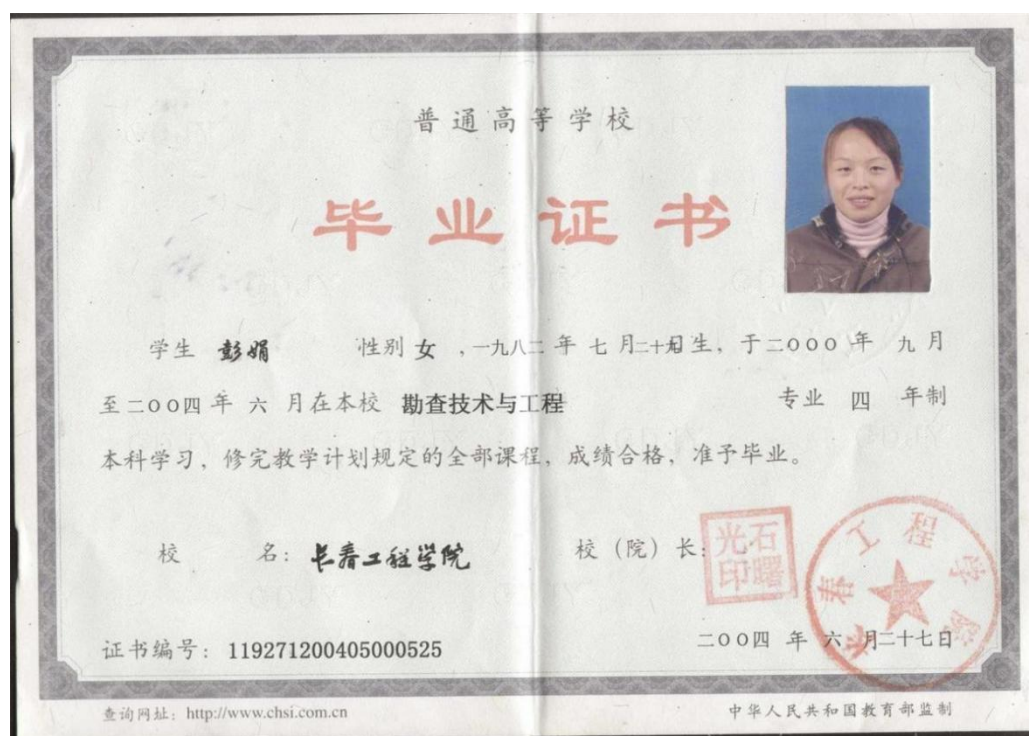 普通高等学校
毕业证书
学生 彭娟 性别 女 ,一九八二 年 七 月二十九日生,于二000 年 九 月
至二00四 年 六 月在本校 勘查技术与工程 专业 四 年制
本科学习,修完教学计划规定的全部课程,成绩合格,准予毕业。
校 名:长春工程学院 校(院)长:
石曙光印
长春工程学院
证书编号:119271200405000525 二00四 年 六 月二十七日
查询网址:http://www.chsi.com.cn 中华人民共和国教育部监制